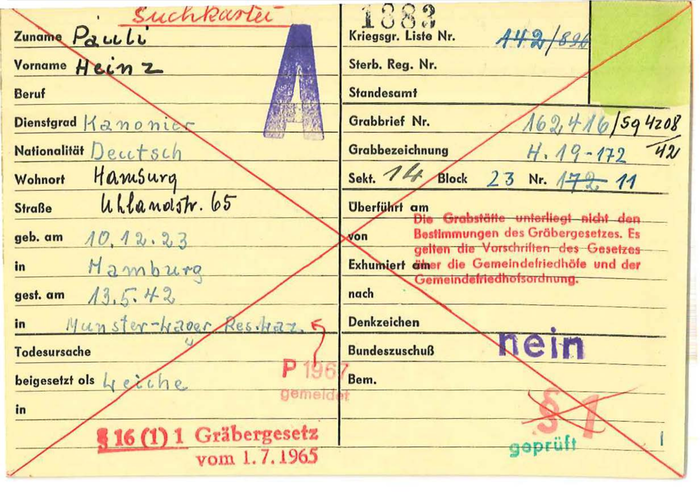 Suchkartei
1883
A
Zuname Pauli
Vorname Heinz
Beruf
Dienstgrad Kanonier
Nationalität Deutsch
Wohnort Hamburg
Straße Uhlandstr. 65
geb. am 10.12.23
in Hamburg
gest. am 13.5.42
in Munster-Lager Res.Laz.
Todesursache
beigesetzt als Leiche
in
§ 16 (1) 1 Gräbergesetz
vom 1.7.1965
P 1967
gemeldet
Kriegsgr. Liste Nr. 142/896
Sterb. Reg. Nr.
Standesamt
Grabbrief Nr. 162416/594208/42
Grabbezeichnung H. 19-172
Sekt. 14 Block 23 Nr. 172 11
Überführt am
von
Exhumiert am
nach
Die Grabstätte unterliegt nicht den
Bestimmungen des Gräbergesetzes. Es
gelten die Vorschriften des Gesetzes
über die Gemeindefriedhöfe und der
Gemeindefriedhofsordnung.
Denkzeichen
Bundeszuschuß nein
Bem.
§ 1
geprüft